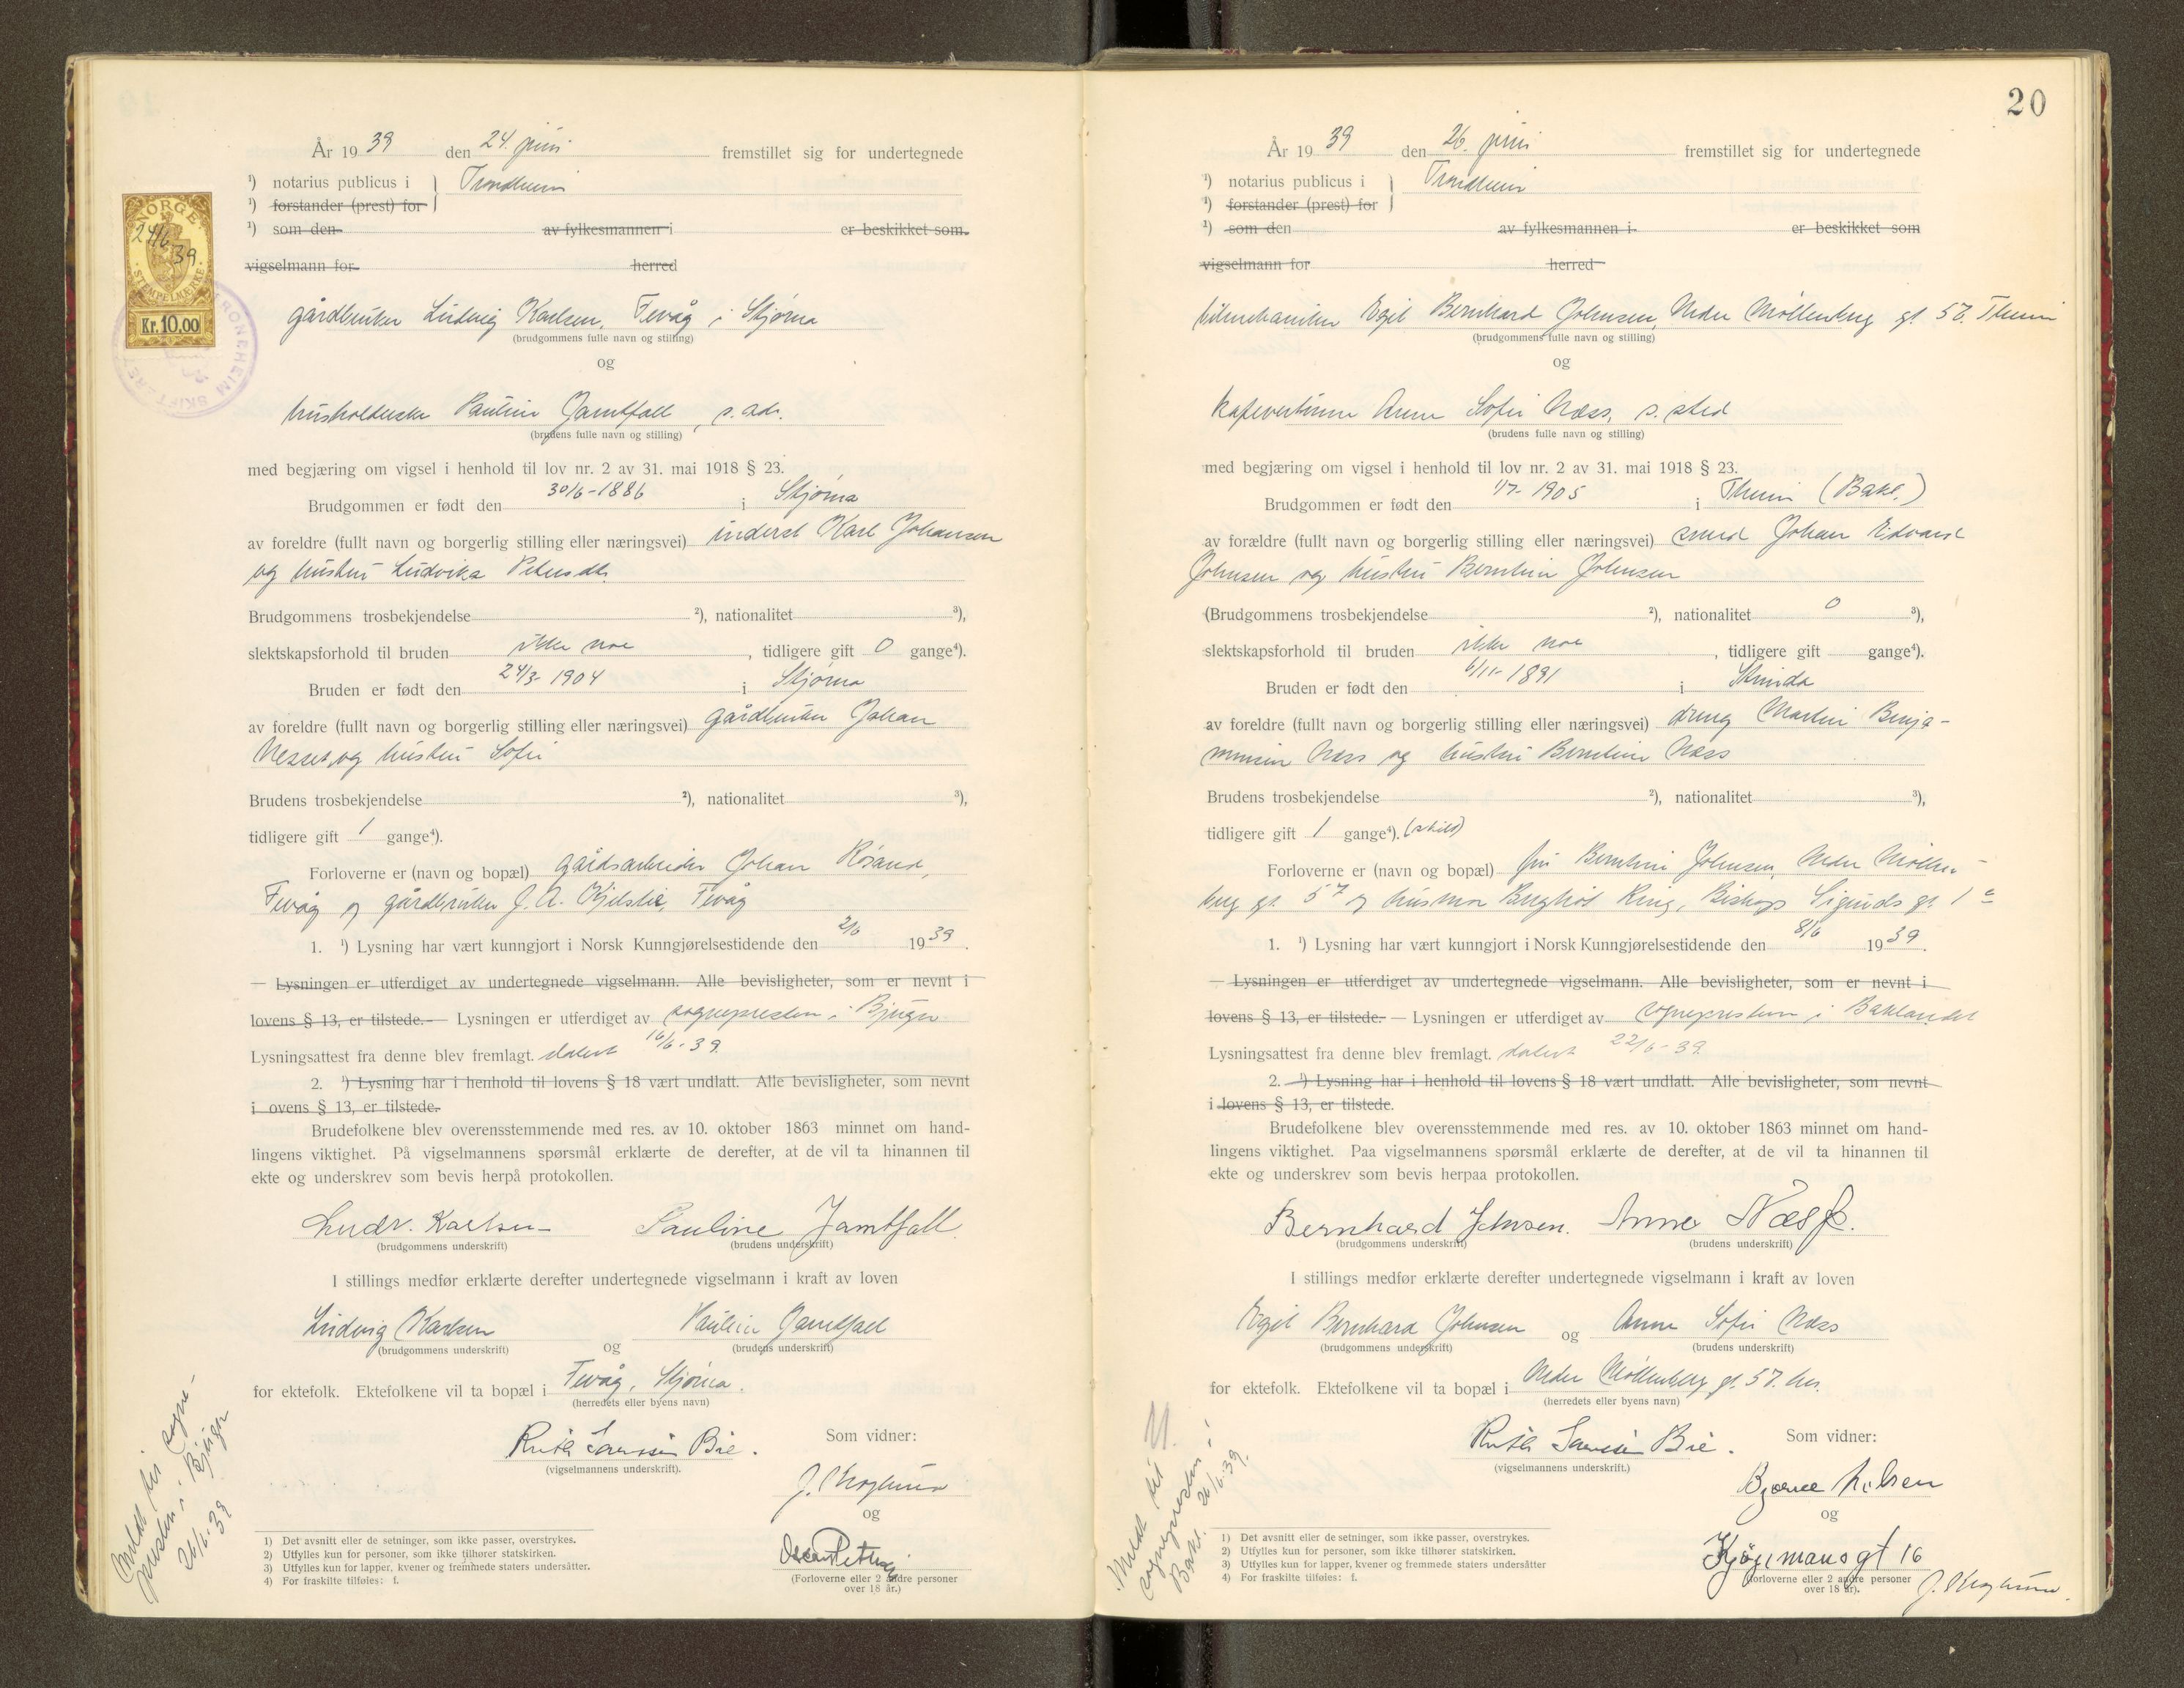 År 1939 den 24. juni fremstillet sig for undertegnede
¹) notarius publicus i } Trondheim
¹) forstander (prest) for
¹) som den av fylkesmannen i er beskikket som
vigselmann for herred
NORGE
24/6 39
STEMPELMERKE
Kr. 10,00
gårdbruker Ludvig Karlsen, Fevåg i Stjørna
(brudgommens fulle navn og stilling)
og
husholderske Pauline Jamtfall, s. adr.
(brudens fulle navn og stilling)
med begjæring om vigsel i henhold til lov nr. 2 av 31. mai 1918 § 23.
Brudgommen er født den 30/6-1886 i Stjørna
av foreldre (fullt navn og borgerlig stilling eller næringsvei) inderst Karl Johansen
og hustru Ludvika Petersdtr.
Brudgommens trosbekjendelse ²), nationalitet ³),
slektskapsforhold til bruden ikke noe, tidligere gift 0 gange⁴).
Bruden er født den 24/3-1904 i Stjørna
av foreldre (fullt navn og borgerlig stilling eller næringsvei) gårdbruker Johan
Nesset og hustru Sofie
Brudens trosbekjendelse ²), nationalitet ³),
tidligere gift 1 gange⁴).
Forloverne er (navn og bopæl) gårdsarbeider Johan Røsand,
Fevåg og gårdbruker J. A. Kjelstie, Fevåg
1. ¹) Lysning har vært kunngjort i Norsk Kunngjørelsestidende den 2/6 1939.
— Lysningen er utferdiget av undertegnede vigselmann. Alle bevisligheter, som er nevnt i
lovens § 13, er tilstede. — Lysningen er utferdiget av sognepresten i Bjugn
Lysningsattest fra denne blev fremlagt. datert 16/6-39.
2. ¹) Lysning har i henhold til lovens § 18 vært undlatt. Alle bevisligheter, som nevnt
i ovens § 13, er tilstede.
Brudefolkene blev overensstemmende med res. av 10. oktober 1863 minnet om hand-
lingens viktighet. På vigselmannens spørsmål erklærte de derefter, at de vil ta hinannen til
ekte og underskrev som bevis herpå protokollen.
Ludv. Karlsen Pauline Jamtfall
(brudgommens underskrift) (brudens underskrift)
I stillings medfør erklærte derefter undertegnede vigselmann i kraft av loven
Ludvig Karlsen og Pauline Jamtfall
(brudgommens underskrift) (brudens underskrift)
for ektefolk. Ektefolkene vil ta bopæl i Fevåg, Stjørna.
(herredets eller byens navn)
Ruth Bie.
(vigselmannens underskrift).
Som vidner:
og
(Forloverne eller 2 andre personer
over 18 år.)
Meldt til sogne-
presten i Bjugn
26/6-39
1) Det avsnitt eller de setninger, som ikke passer, overstrykes.
2) Utfylles kun for personer, som ikke tilhører statskirken.
3) Utfylles kun for lapper, kvener og fremmede staters undersåtter.
4) For fraskilte tilføies: f.
20
År 1939 den 26. juni fremstillet sig for undertegnede
¹) notarius publicus i } Trondheim
¹) forstander (prest) for
¹) som den av fylkesmannen i er beskikket som
vigselmann for herred
bilmekaniker Egil Bernhard Johnsen, Nedre Møllenberg gt. 57. Theim
(brudgommens fulle navn og stilling)
og
kafevertinne Anne Sofie Næss, s. sted
(brudens fulle navn og stilling)
med begjæring om vigsel i henhold til lov nr. 2 av 31. mai 1918 § 23.
Brudgommen er født den 1/7-1905 i Theim (Bakl.)
av forældre (fullt navn og borgerlig stilling eller næringsvei) smed Johan Edvard
Johnsen og hustru Berntine Johnsen
(Brudgommens trosbekjendelse ²), nationalitet 0 ³),
slektskapsforhold til bruden ikke noe, tidligere gift gange⁴).
Bruden er født den 6/11-1891 i Strinda
av foreldre (fullt navn og borgerlig stilling eller næringsvei) dreng Martin Benja-
minsen Næss og hustru Berntine Næss
Brudens trosbekjendelse ²), nationalitet ³),
tidligere gift 1 gange⁴). (skild)
Forloverne er (navn og bopæl) fru Berntine Johnsen, Nedre Møllen-
berg gt. 57 og husmor Bergliot Ring, Biskop Sigurds gt. 1 a
1. ¹) Lysning har vært kunngjort i Norsk Kunngjørelsestidende den 8/6 1939.
— Lysningen er utferdiget av undertegnede vigselmann. Alle bevisligheter, som er nevnt i
lovens § 13, er tilstede. — Lysningen er utferdiget av sognepresten i Baklandet
Lysningsattest fra denne blev fremlagt. datert 22/6-39
2. ¹) Lysning har i henhold til lovens § 18 vært undlatt. Alle bevisligheter, som nevnt
i lovens § 13, er tilstede.
Brudefolkene blev overensstemmende med res. av 10. oktober 1863 minnet om hand-
lingens viktighet. Paa vigselmannens spørsmål erklærte de derefter, at de vil ta hinannen til
ekte og underskrev som bevis herpaa protokollen.
Bernhard Johnsen. Anne Næss.
(brudgommens underskrift) (brudens underskrift)
I stillings medfør erklærte derefter undertegnede vigselmann i kraft av loven
Egil Bernhard Johnsen og Anne Sofie Næss
(brudgommens underskrift) (brudens underskrift)
for ektefolk. Ektefolkene vil ta bopæl i Nedre Møllenberg gt. 57. her.
(herredets eller byens navn)
Ruth Bie.
(vigselmannens underskrift.)
Som vidner:
Bjarne Nilsen
og
Kjøpmansgt 16
(forloverne eller 2 andre personer
over 18 år).
Meldt til
sognepresten i
Bakl. 26/6-39.
1) Det avsnitt eller de setninger, som ikke passer, overstrykes.
2) Utfylles kun for personer, som ikke tilhører statskirken.
3) Utfylles kun for lapper, kvener og fremmede staters undersåtter
4) For fraskilte tilføies: f.